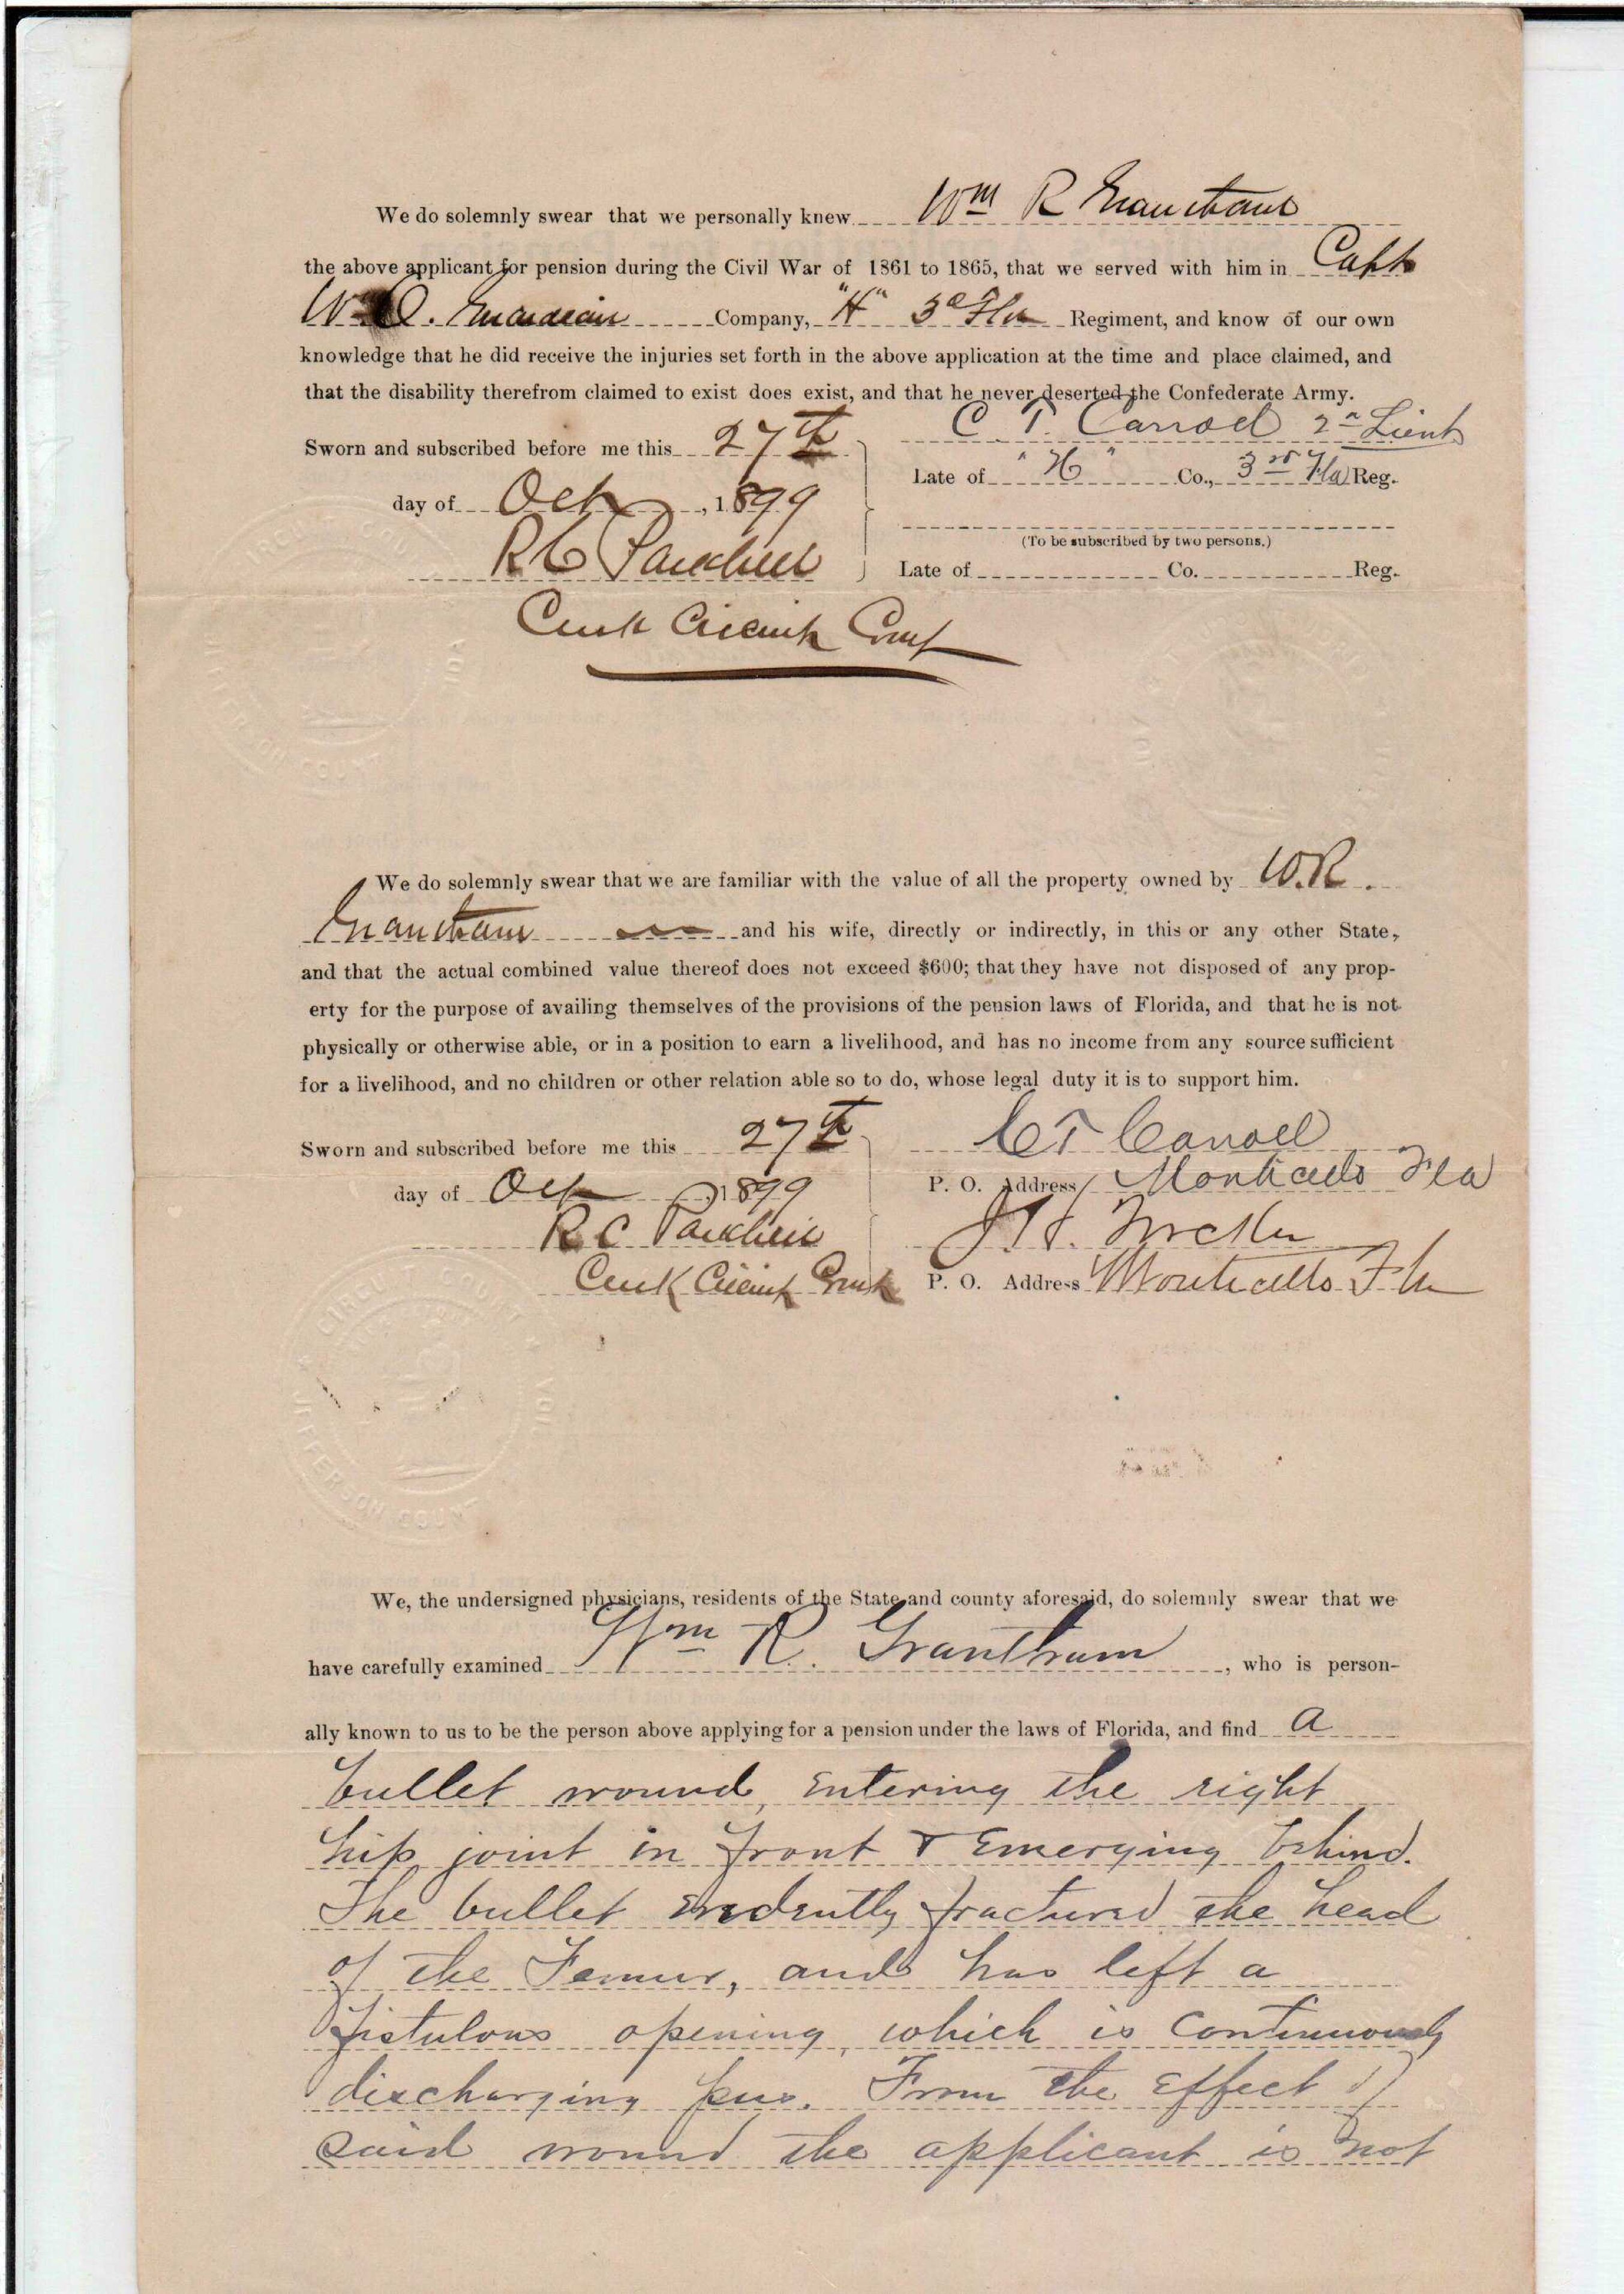 We do solemnly swear that we personally knew Wm R Grantham
the above applicant for pension during the Civil War of 1861 to 1865, that we served with him in Capt
W. O. Girardeau Company, "H" 3d Fla Regiment, and know of our own
knowledge that he did receive the injuries set forth in the above application at the time and place claimed, and
that the disability therefrom claimed to exist does exist, and that he never deserted the Confederate Army.
Sworn and subscribed before me this 27th
day of Oct, 1899
R C
Clerk Circuit Court
C. T. Carroll 2n Lieut
Late of "H" Co., 3rd Fla Reg.
(To be subscribed by two persons.)
Late of Co. Reg.
We do solemnly swear that we are familiar with the value of all the property owned by W.R.
Grantham and his wife, directly or indirectly, in this or any other State,
and that the actual combined value thereof does not exceed $600; that they have not disposed of any prop-
erty for the purpose of availing themselves of the provisions of the pension laws of Florida, and that he is not
physically or otherwise able, or in a position to earn a livelihood, and has no income from any source sufficient
for a livelihood, and no children or other relation able so to do, whose legal duty it is to support him.
Sworn and subscribed before me this 27th
day of Oct 1899
R C
Clerk Circuit Court
C T Carroll
P. O. Address Monticello Fla
P. O. Address Monticello Fla
CIRCUIT COURT
JEFFERSON COUNTY
We, the undersigned physicians, residents of the State and county aforesaid, do solemnly swear that we
have carefully examined Wm R. Grantham, who is person-
ally known to us to be the person above applying for a pension under the laws of Florida, and find a
bullet wound, entering the right
hip joint in front & emerging behind.
The bullet evidently fractured the head
of the Femur, and has left a
fistulous opening, which is continuously
discharging pus. From the effect of
said wound the applicant is not